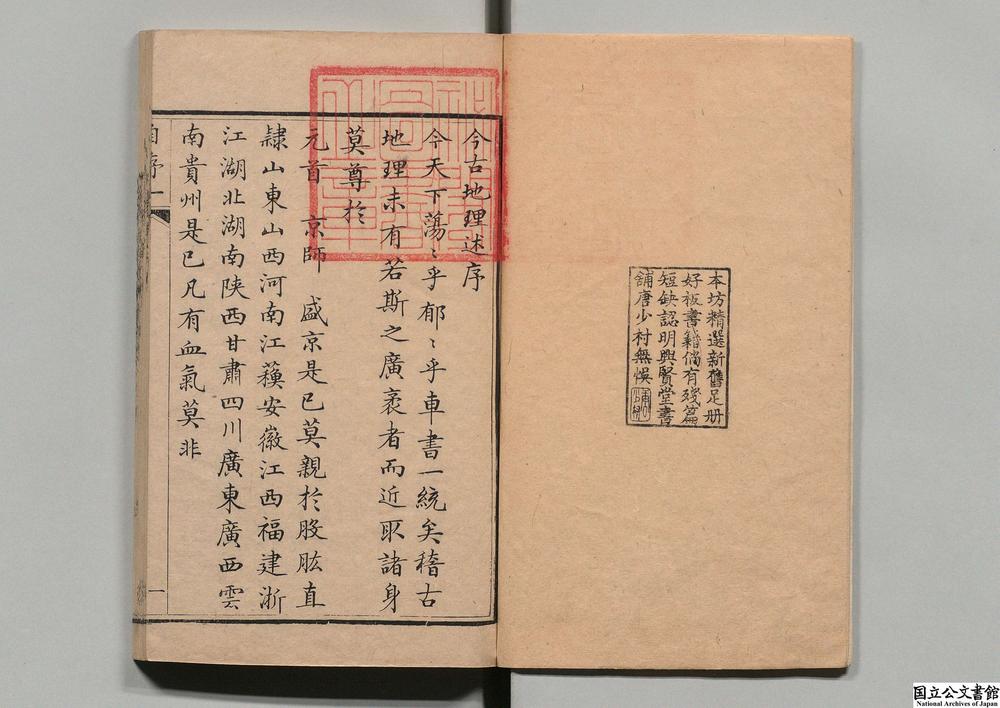 本坊精選新舊足册
好板書籍倘有殘篇
短缺認明興賢堂書
舖唐少村無悞
今古地理述序
今天下蕩〻乎郁〻乎車書一統矣稽古
地理未有若斯之廣袤者而近取諸身
莫尊於
元首 京師 盛京是已莫親於股肱直
隸山東山西河南江蘓安徽江西福建浙
江湖北湖南陝西甘肅四川廣東廣西雲
南貴州是已凡有血氣莫非
自序
一
国立公文書館
National Archives of Japan